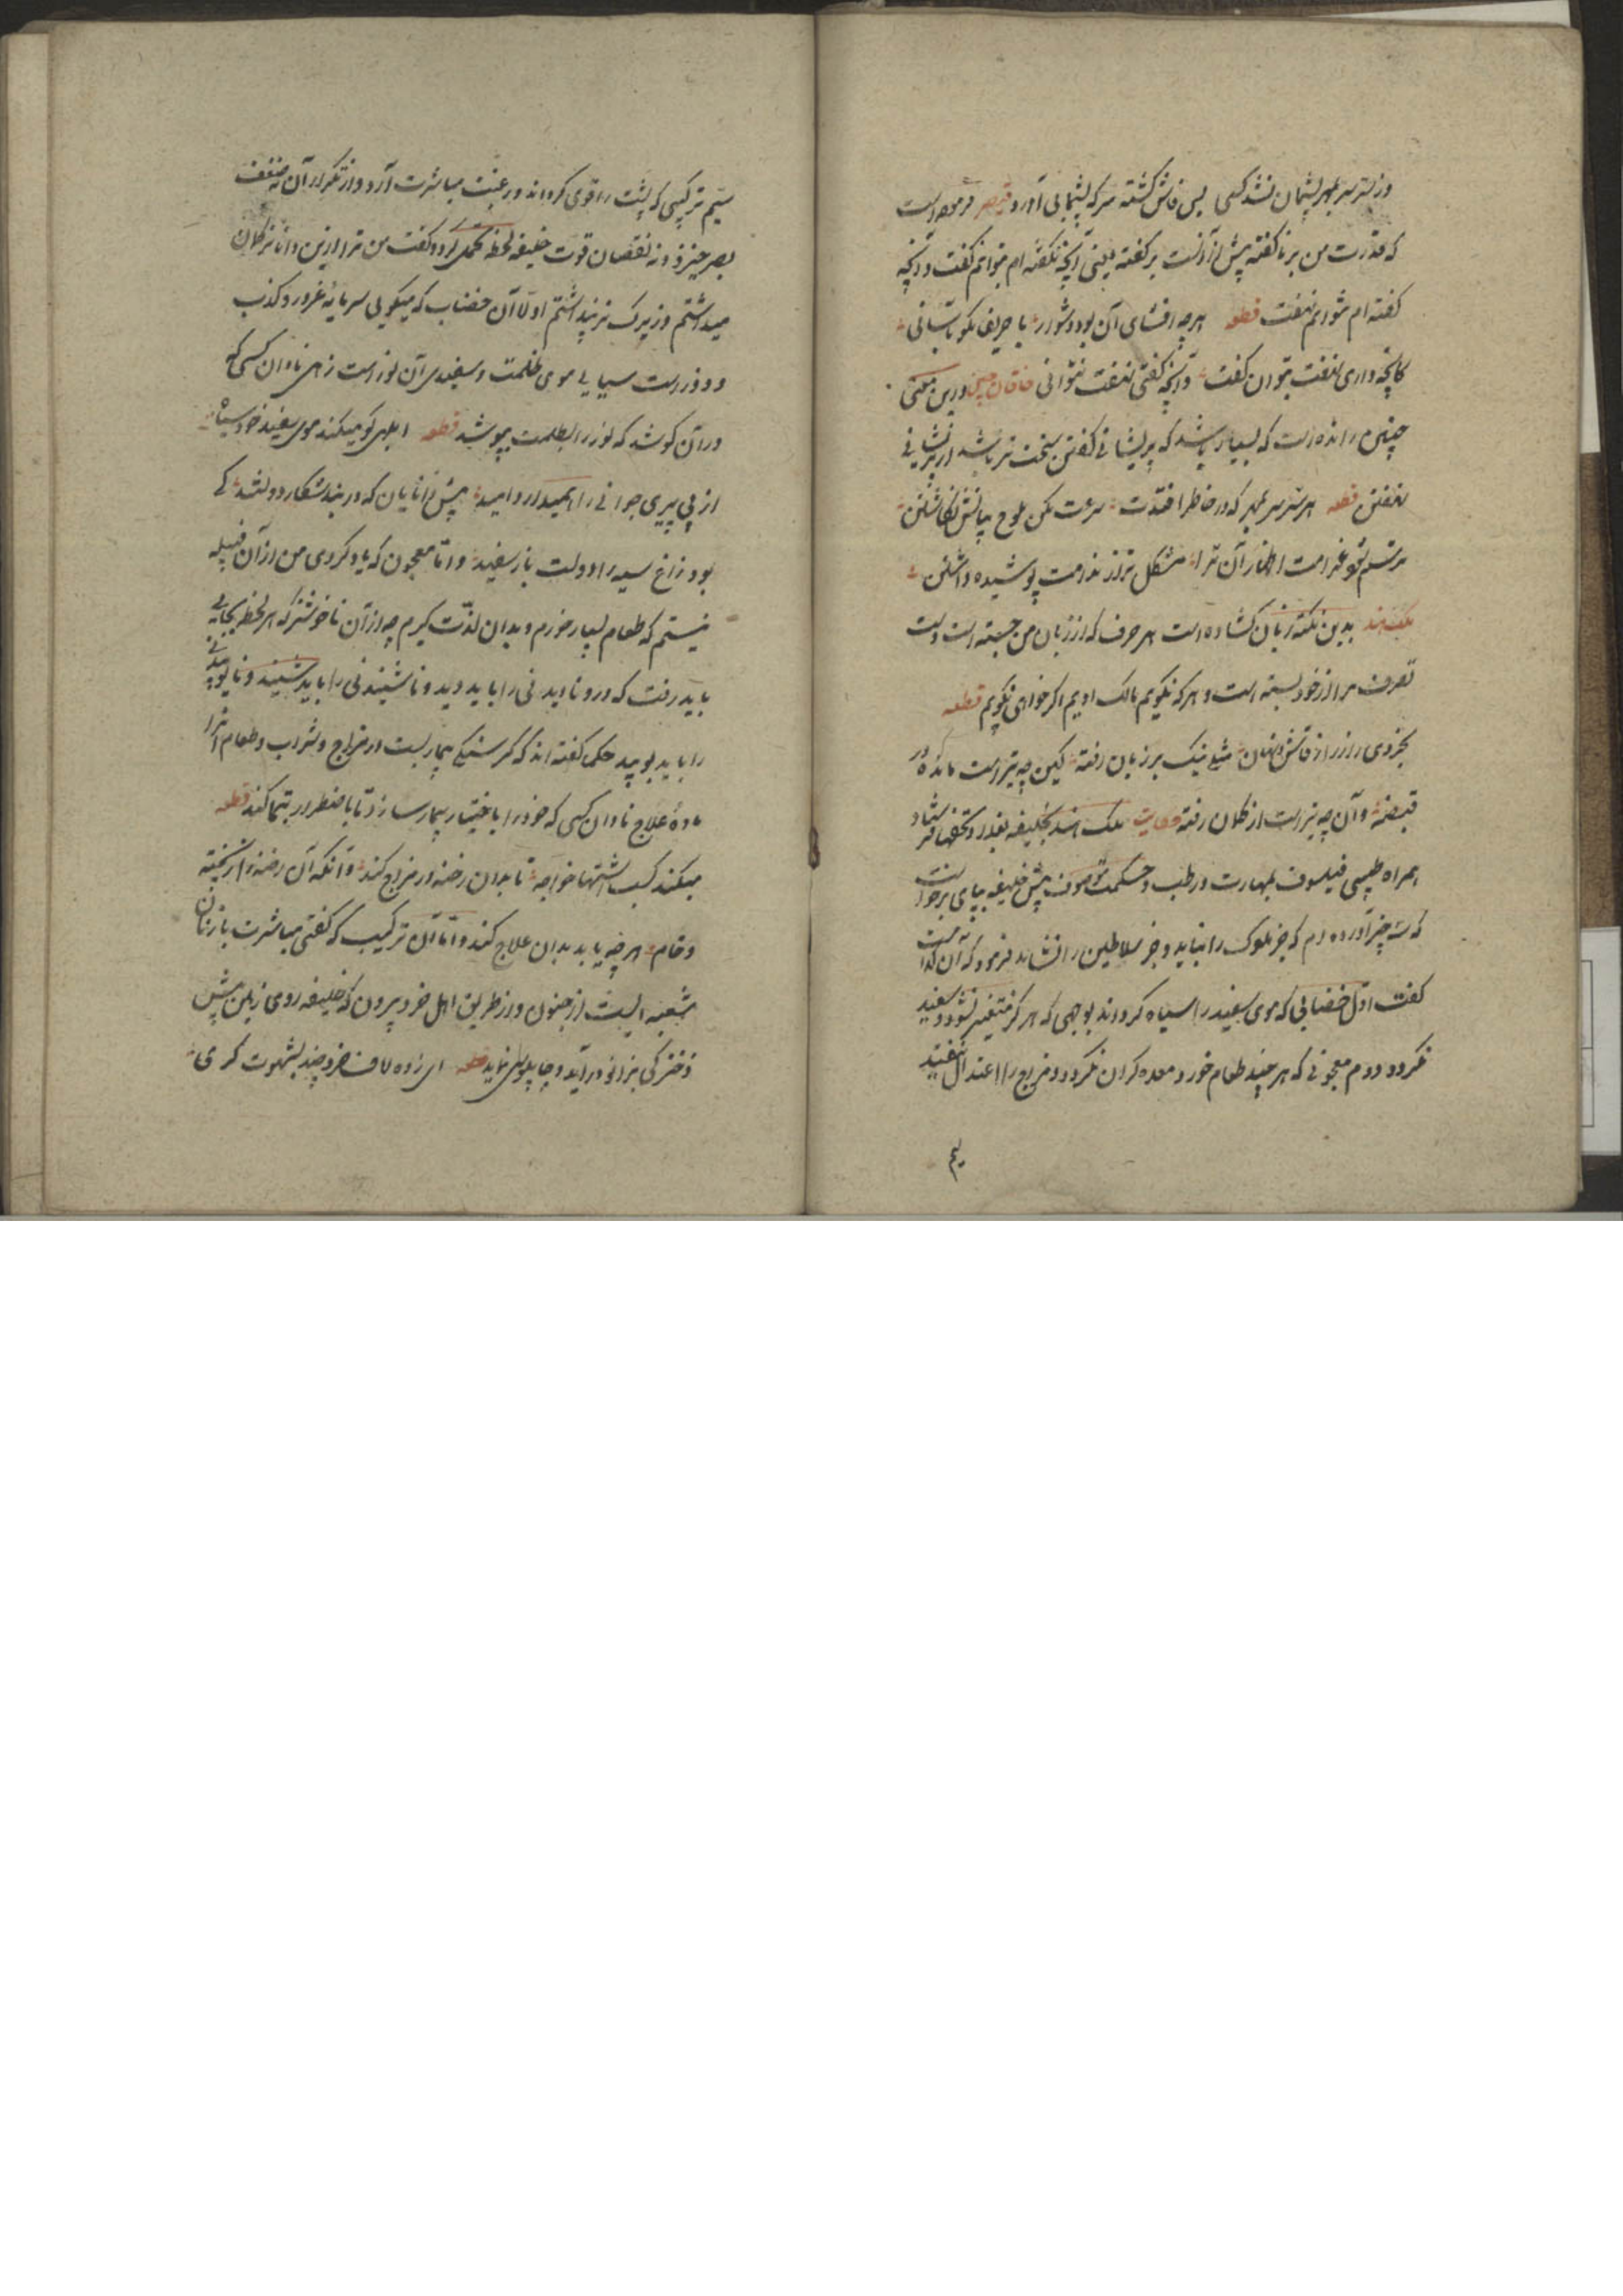 وز ستر سر بمهر پشیمان نشد کسی بس فاش گشته سر که پشیمانی آورد قیصر فرموده است
که قدرت من بر ناگفته پیش از آنست بر گفته یعنی آنچه نگفته ام بتوانم گفت و آنچه
گفته ام نتوانم نهفت قطعه هر چه افشای آن بود دشوار با حریفان مگو بآسانی
کانچه داری نهفت بتوان گفت وآنچه گفتی نهفت نتوانی خاقان چین درین معنی
چنین رانده است که بسیار باشد که پریشانی گفتن سخت تر باشد از پریشانی
نهفتن قطعه هر سر سر بمهر که در خاطر افتدت سرعت مکن بلوح بیانش نگاشتن
ترسم شود غرامت اظهار آن ترا مشکل تر از ندامت پوشیده داشتن
ملک هند بدین نکته زبان گشاده است هر حرف که از زبان من جسته است دست
تصرف مرا از خود بسته است و هر که نگویم مالک اویم اگر خواهم نگویم قطعه
بخردی راز فاش و نهان مثل نیک بر زبان رفته کین چه تیرست مانده در
قبضه وآن چه تیرست از کمان رفته حکایت ملک هند بخلیفه بغداد تحفها فرستاد
همراه طبیبی فیلسوف بمهارت در طب و حکمت موصوف پیش خلیفه بپای برخاست
که سه چیز آورده ام که جز ملوک را نباید و جز سلاطین را نشاید فرمود که آن کدامست
گفت اول خضابی که موی سفید را سیاه گرداند بوجهی که هرگز متغیر نشود و سفید
نگردد دوم معجونی که هر چند طعام خورد معده گران نگردد و مزاج را از اعتدال نیفتد
سیم
سیم ترکیبی که پشت را قوی گرداند و رغبت مباشرت آرد و از تکرار آن نه ضعف
بصر خیزد و نه نقصان قوت خلیفه لحظه تحمل کرد و گفت من ترا ازین داناتر گمان
میداشتم و زیرک تر پنداشتم اولا آن خضاب که میگویی سرمایه غرور و کذب
و زورست سیاهی موی ظلمت و سفیدی آن نورست زهی نادان کسی که
در آن کوشد که نور را بظلمت بپوشد قطعه ابلهی کو میکند موی سفید خود سیاه
از پی پیری جوانی را همیدارد امید پیش دانایان که در بند شکار دولتند کی
بود زاغ سیه را دولت باز سفید و اما معجون که یاد کردی من از آن قبیله
نیستم که طعام بسیار خورم و بدان لذت گیرم چه از آن ناخوشتر که هر لحظه بجایی
باید رفت که در و نادیدنی را باید دید و ناشنیدنی را باید شنید و نابوییدنی
را باید بویید حکما گفته اند که گرسنگی بیماریست در مزاج و شراب و طعام آنرا
ماده علاج نادان کسی که خود را باختیار بیمار سازد تا باضطرار تیمار کند قطعه
میکند کسب اشتها خواجه تا بدان رخنه در مزاج کند وآنگه آن رخنه را ز پخته
و خام هر چه یابد بدان علاج کند و اما آن ترکیب که گفتی مباشرت با زنان
شعبه ایست از جنون و از طریق اهل خرد بیرون که خلیفه روی زمین پیش
دخترکی بزانو درآید و چاپلوسی نماید قطعه ای زده لاف خرد چند بشهوت گرمی